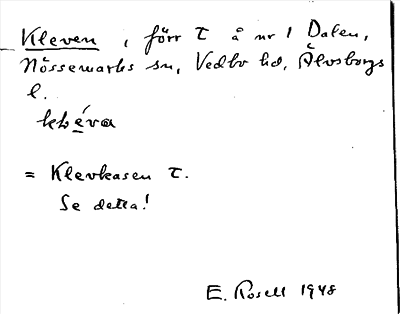 Kleven, förr T å nr 1 Dalen,
Nössemarks sn, Vedbo hd, Älvsborgs
l.
= Klevkasen T.
Se detta!
E. Rosell 1948